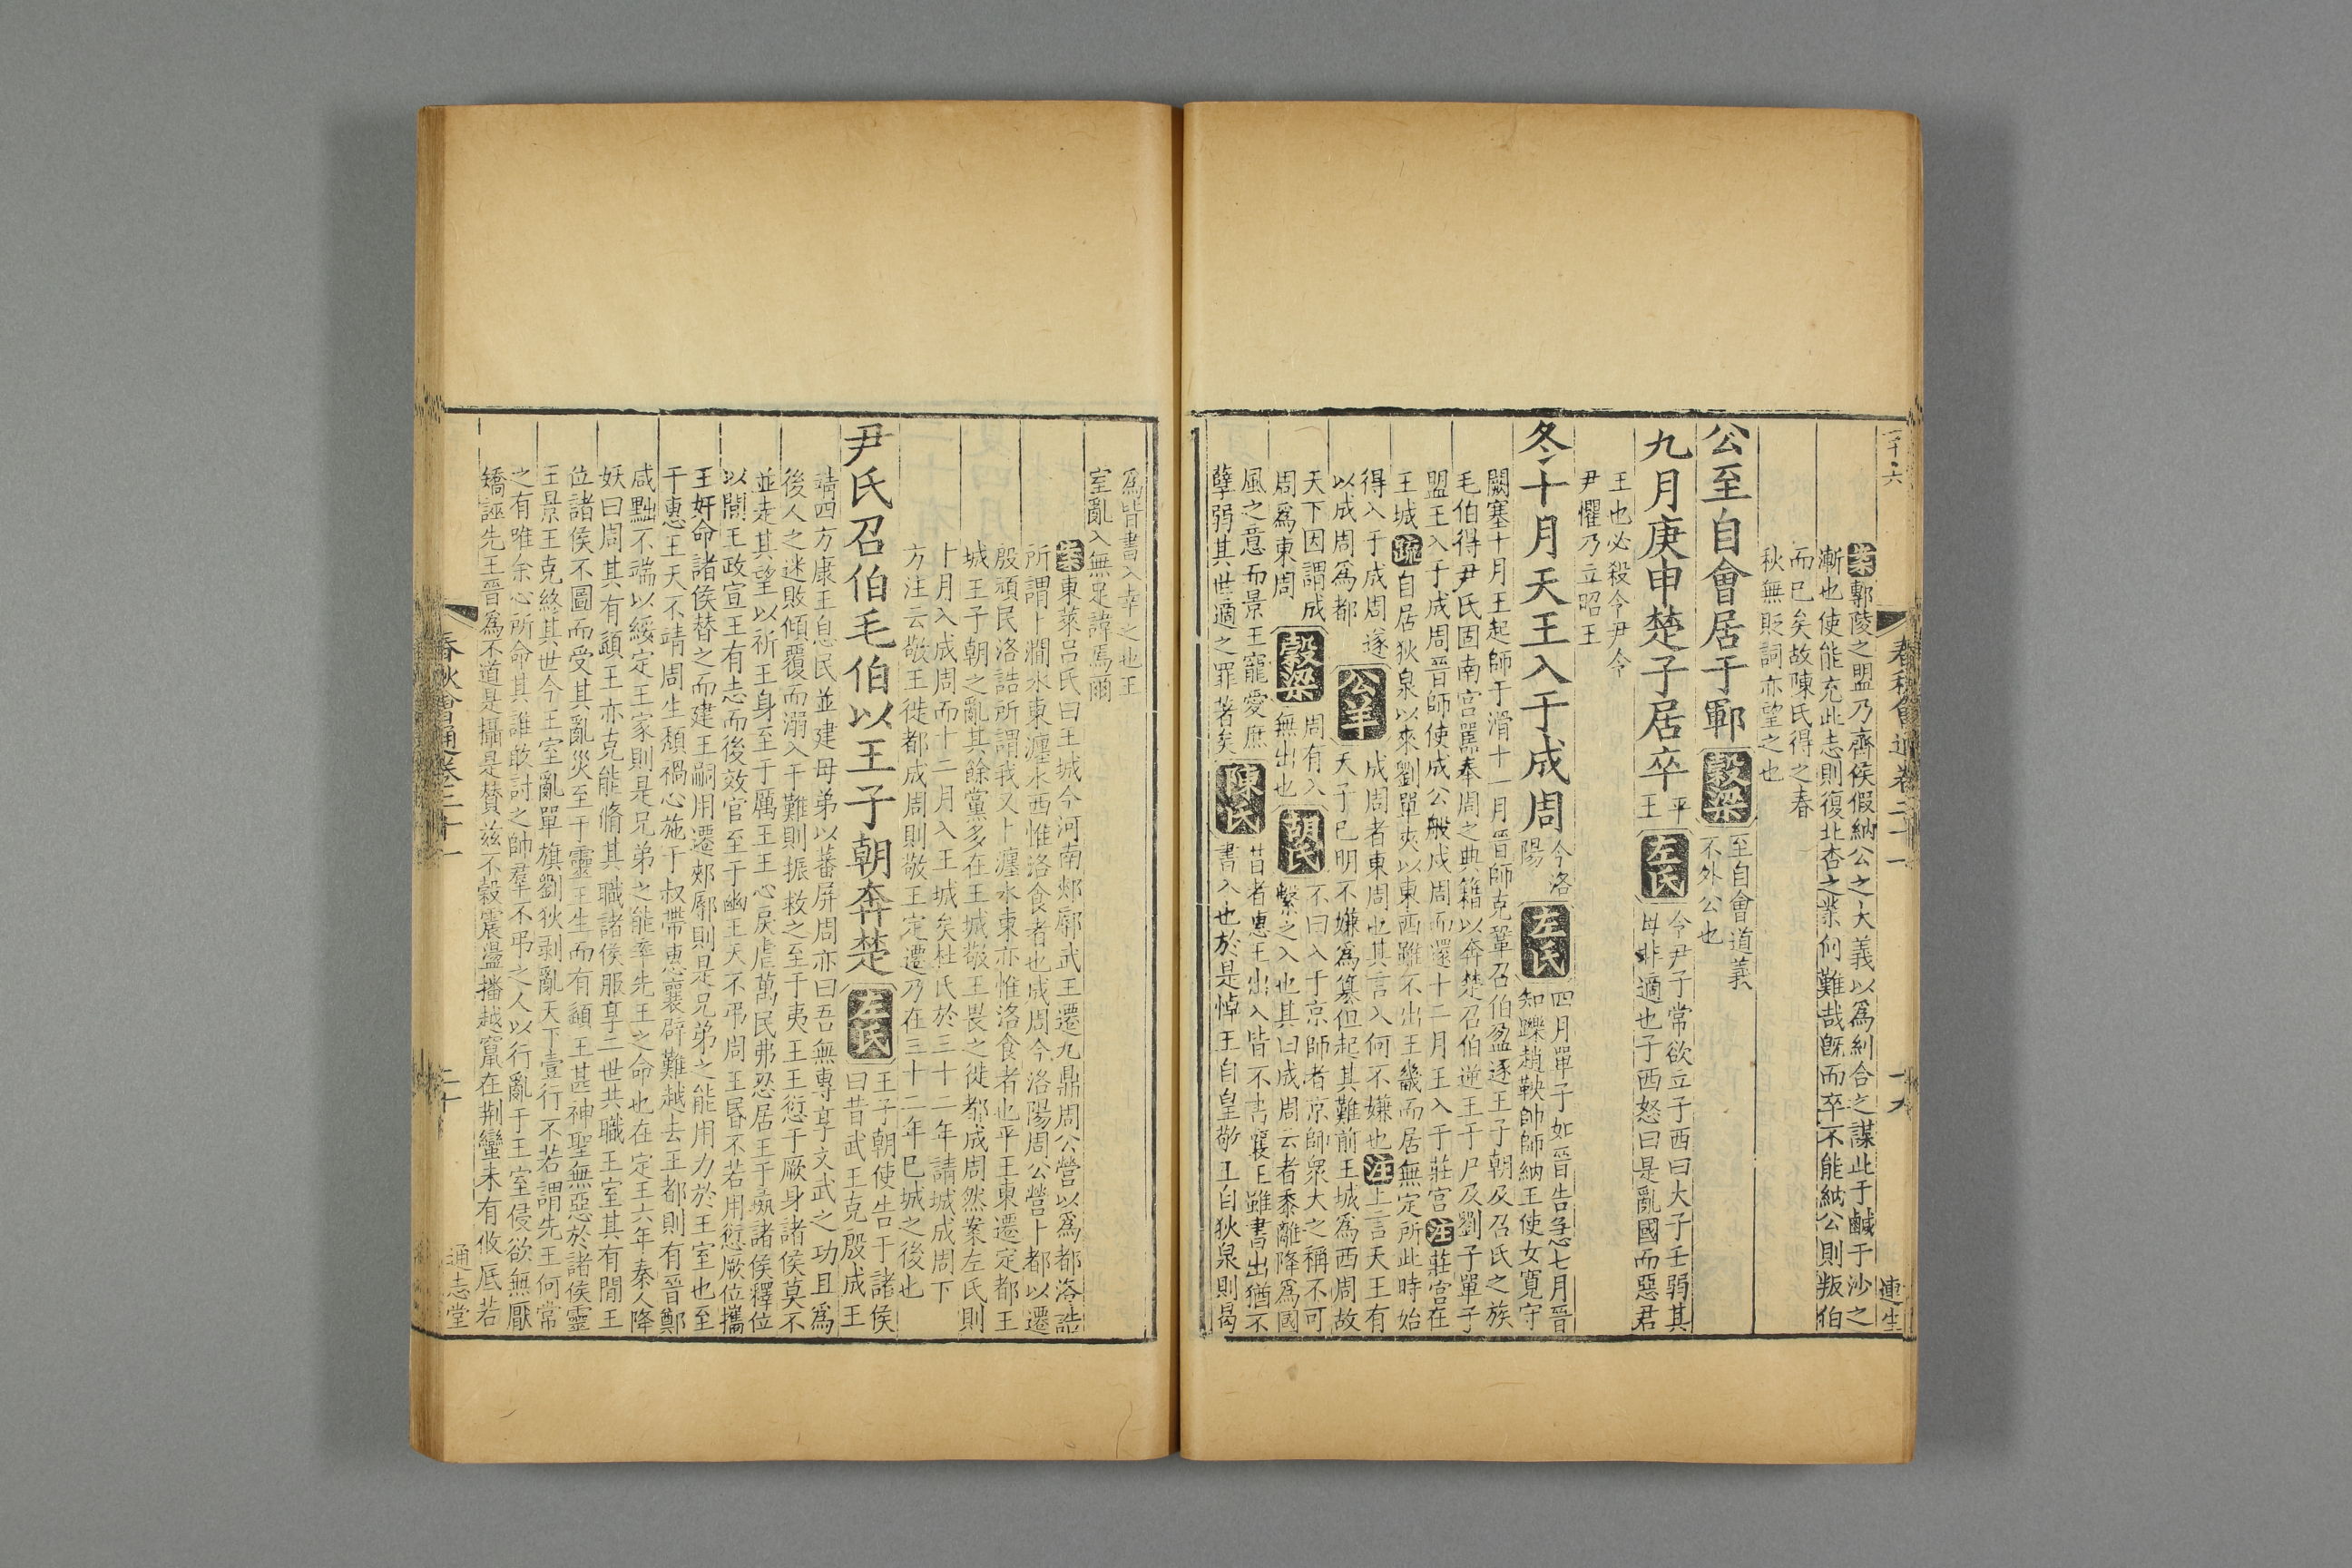 案鄟陵之盟乃齊侯假納公之大義以為糾合之謀此于鹹于沙之
漸也使能充此志則復北杏之業何難哉旣而卒不能納公則叛伯
而已矣故陳氏得之春
秋無貶詞亦望之也
公至自會居于鄆
穀梁
至自會道義
不外公也
九月庚申楚子居卒
平
王
左氏
令尹子常欲立子西曰大子壬弱其
母非適也子西怒曰是亂國而惡君
王也必殺令尹令
尹懼乃立昭王
冬十月天王入于成周
今洛
陽
左氏
四月單子如晉告急七月晉
知躒趙鞅帥師納王使女寬守
闕塞十月王起師于滑十一月晉師克鞏召伯盈逐王子朝及召氏之族
毛伯得尹氏固南宮嚚奉周之典籍以奔楚召伯逆王于尸及劉子單子
盟王入于成周晉師使成公般戍周而還十二月王入于莊宮注莊宮在
王城疏自居狄泉以來劉單夾以東西雖不出王畿而居無定所此時始
得入于成周遂
以成周為都
公羊
成周者東周也其言入何不嫌也注上言天王有
天子已明不嫌為篡但起其難前王城為西周故
天下因謂成
周為東周
穀梁
周有入
無出也
胡氏
不曰入于京師者京師眾大之稱不可
繫之入也其曰成周云者黍離降為國
風之意而景王寵愛庶
孽弱其世適之罪著矣
陳氏
昔者惠王出入皆不書襄王雖書出猶不
書入也於是悼王自皇敬王自狄泉則曷
為皆書入幸之也王
室亂入無足諱焉爾
案東萊呂氏曰王城今河南郟鄏武王遷九鼎周公營以為都洛誥
所謂卜澗水東瀍水西惟洛食者也成周今洛陽周公營卜都以遷
殷頑民洛誥所謂我又卜瀍水東亦惟洛食者也平王東遷定都王
城王子朝之亂其餘黨多在王城敬王畏之徙都成周然案左氏則
十月入成周而十二月入王城矣杜氏於三十二年請城成周下
方注云敬王徙都成周則敬王定遷乃在三十二年已城之後也
尹氏召伯毛伯以王子朝奔楚
左氏
王子朝使告于諸侯
曰昔武王克殷成王
靖四方康王息民並建母弟以蕃屏周亦曰吾無專享文武之功且為
後人之迷敗傾覆而溺入于難則振救之至于夷王王愆于厥身諸侯莫不
並走其望以祈王身至于厲王王心戾虐萬民弗忍居王于彘諸侯釋位
以間王政宣王有志而後效官至于幽王天不弔周王昏不若用愆厥位攜
王奸命諸侯替之而建王嗣用遷郟鄏則是兄弟之能用力於王室也至
于惠王天不靖周生頹禍心施于叔帶惠襄辟難越去王都則有晉鄭
咸黜不端以綏定王家則是兄弟之能率先王之命也在定王六年秦人降
妖曰周其有頿王亦克能脩其職諸侯服享二世共職王室其有間王
位諸侯不圖而受其亂災至于靈王生而有頿王甚神聖無惡於諸侯靈
王景王克終其世今王室亂單旗劉狄剥亂天下壹行不若謂先王何常
之有唯余心所命其誰敢討之帥羣不弔之人以行亂于王室侵欲無厭
矯誣先王晉為不道是攝是贊兹不穀震盪播越竄在荆蠻未有攸厎若
春秋會通卷二十一
十九
連生
春秋會通卷二十一
二十
通志堂